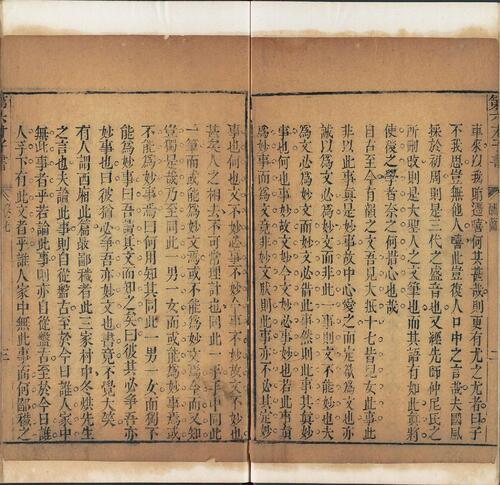 第六才子書 酬簡
車來以我賄遷嘻何其甚哉則更有尤之尤者曰子
不我思豈無他人嘻此豈復人口中之言哉夫國風
採於初周則是三代之盛音也又經先師仲尼氏之
所刪改則是大聖人之文筆也而其語有如此眞將
使後之學者奈之何措心也哉
自古至今有韻之文吾見大抵十七皆兒女此事此
非以此事眞是妙事故中心愛之而定欲爲文也亦
誠以爲文必爲妙文而非此一事則文不能妙也夫
爲文必爲妙文而妙文必借此事然則此事其眞妙
事也何也事妙故文妙今文妙必事妙也若此事眞
爲妙事而爲文竟非妙文然則此事亦不必其定妙
事也何也文不妙必事不妙今事不妙故文不妙也
甚矣人之相去不可常理計也同此一手手中同此
一筆而或能爲妙文焉或不能爲妙文焉今而又知
豈獨是哉乃至同此一男一女而或能爲妙事焉或
不能爲妙事焉曰何用知其同此一男一女而獨不
能爲妙事曰吾讀其文而知之矣曰彼其必爭吾亦
妙事也曰彼猶必爭吾亦妙文也書竟不覺大笑
有人謂西廂此篇最鄙穢者此三家村中冬烘先生
之言也夫論此事則自從盤古至於今日誰人家中
無此事者乎若論此事則亦自從盤古至於今日誰
人手下有此文者乎誰人家中無此事而何鄙穢之
第六才子書 卷七 三